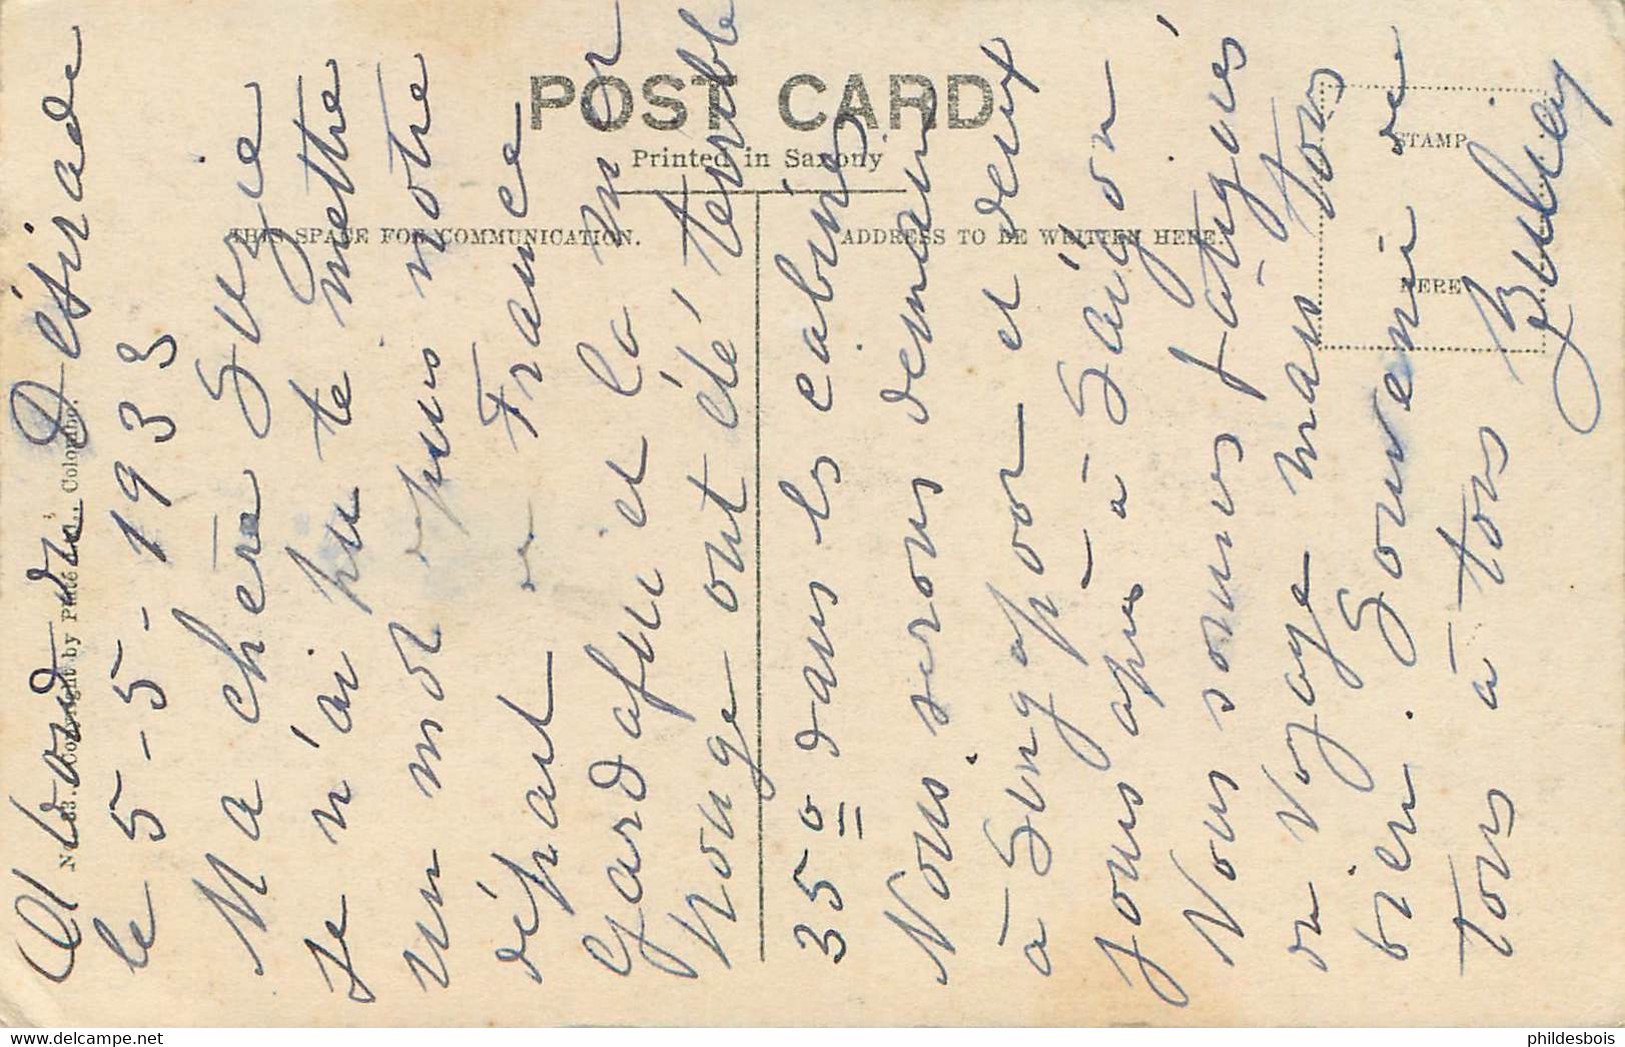 POST CARD
Printed in Saxony
THIS SPACE FOR COMMUNICATION.
ADDRESS TO BE WRITTEN HERE.
STAMP
HERE
Copyright by Plâté Colombo.
A bord du Désirade
le 5-5-1933
Ma chère Suzie
Je n'ai pu te mettre
un mot depuis notre
départ de France
Gardafui et la mer
Rouge ont été terrible
35° dans les cabines
Nous serons demain
à Singapoor et deux
jours après à Saïgon
Nous sommes fatigués
du voyage mais tous
bien. Souvenir de
tous à tous
phildesbois
www.delcampe.net